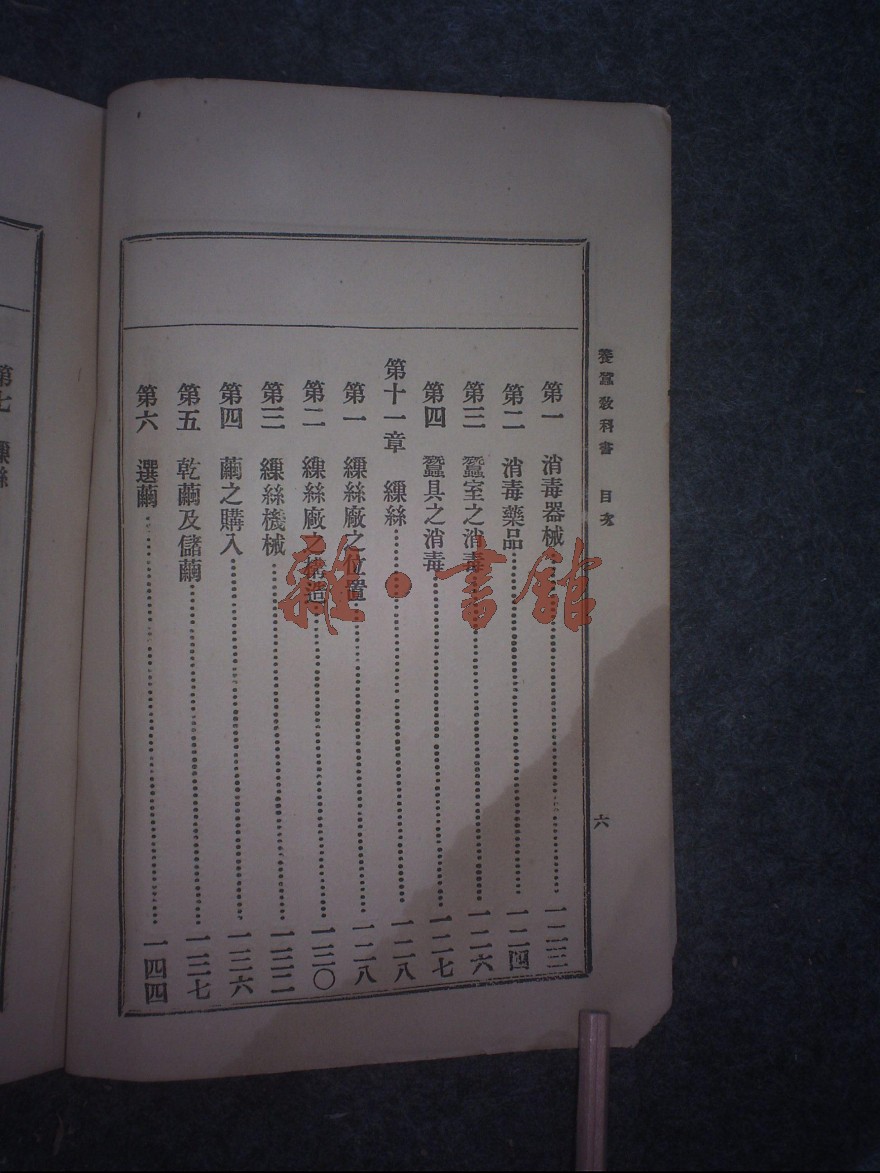 養蠶敎科書 目次 六
第一 消毒器械……一二三
第二 消毒藥品……一二四
第三 蠶室之消毒……一二六
第四 蠶具之消毒……一二七
第十一章 繅絲……一二八
第一 繅絲廠之位置……一二八
第二 繅絲廠之構造……一三〇
第三 繅絲機械……一三二
第四 繭之購入……一三六
第五 乾繭及儲繭……一三七
第六 選繭……一四四
第七 繅絲
雜·書館